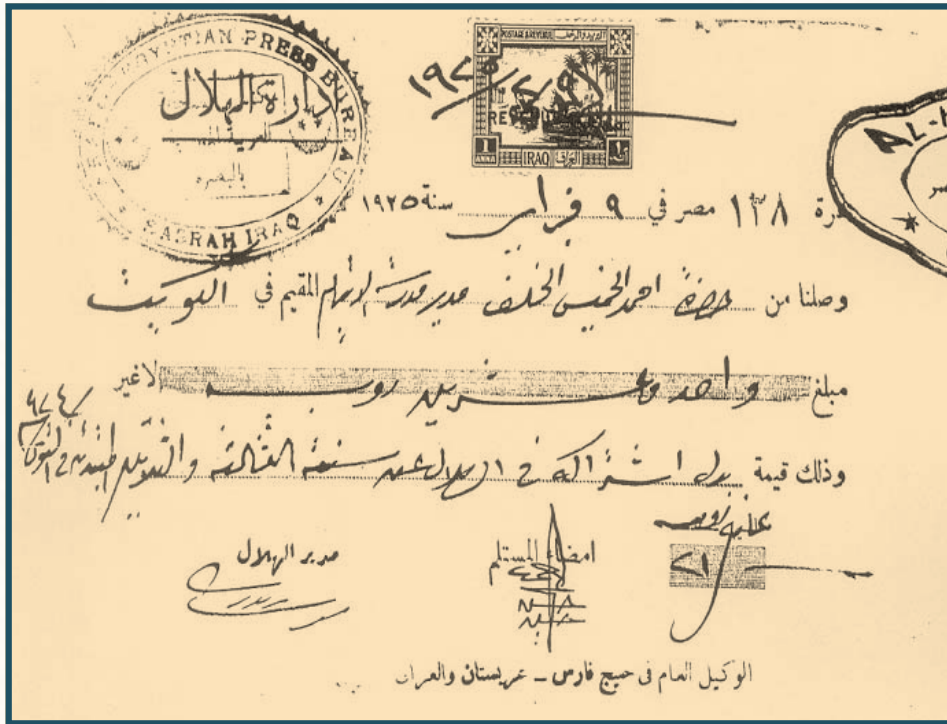 EGYPTIAN PRESS BUREAU
ادارة الهلال
بالبصره
BASRAH IRAQ
POSTAGE & REVENUE البريد والرسوم
١٩٢٥
1 ANNA IRAQ العراق ١
AL-
مصر
نمرة ١٣٨ مصر في ٩ فبراير سنة ١٩٢٥
وصلنا من حضرة احمد الخميس الخلف مدير مدرسة المقيم في الكويت
مبلغ واحد وعشرين روبيه لاغير
وذلك قيمة بدل اشتراكه في الهلال عن سنته الثالثة والثلاثين
٢١
امضاء المستلم
مدير الهلال
الوكيل العام في خليج فارس – عربستان والعراق